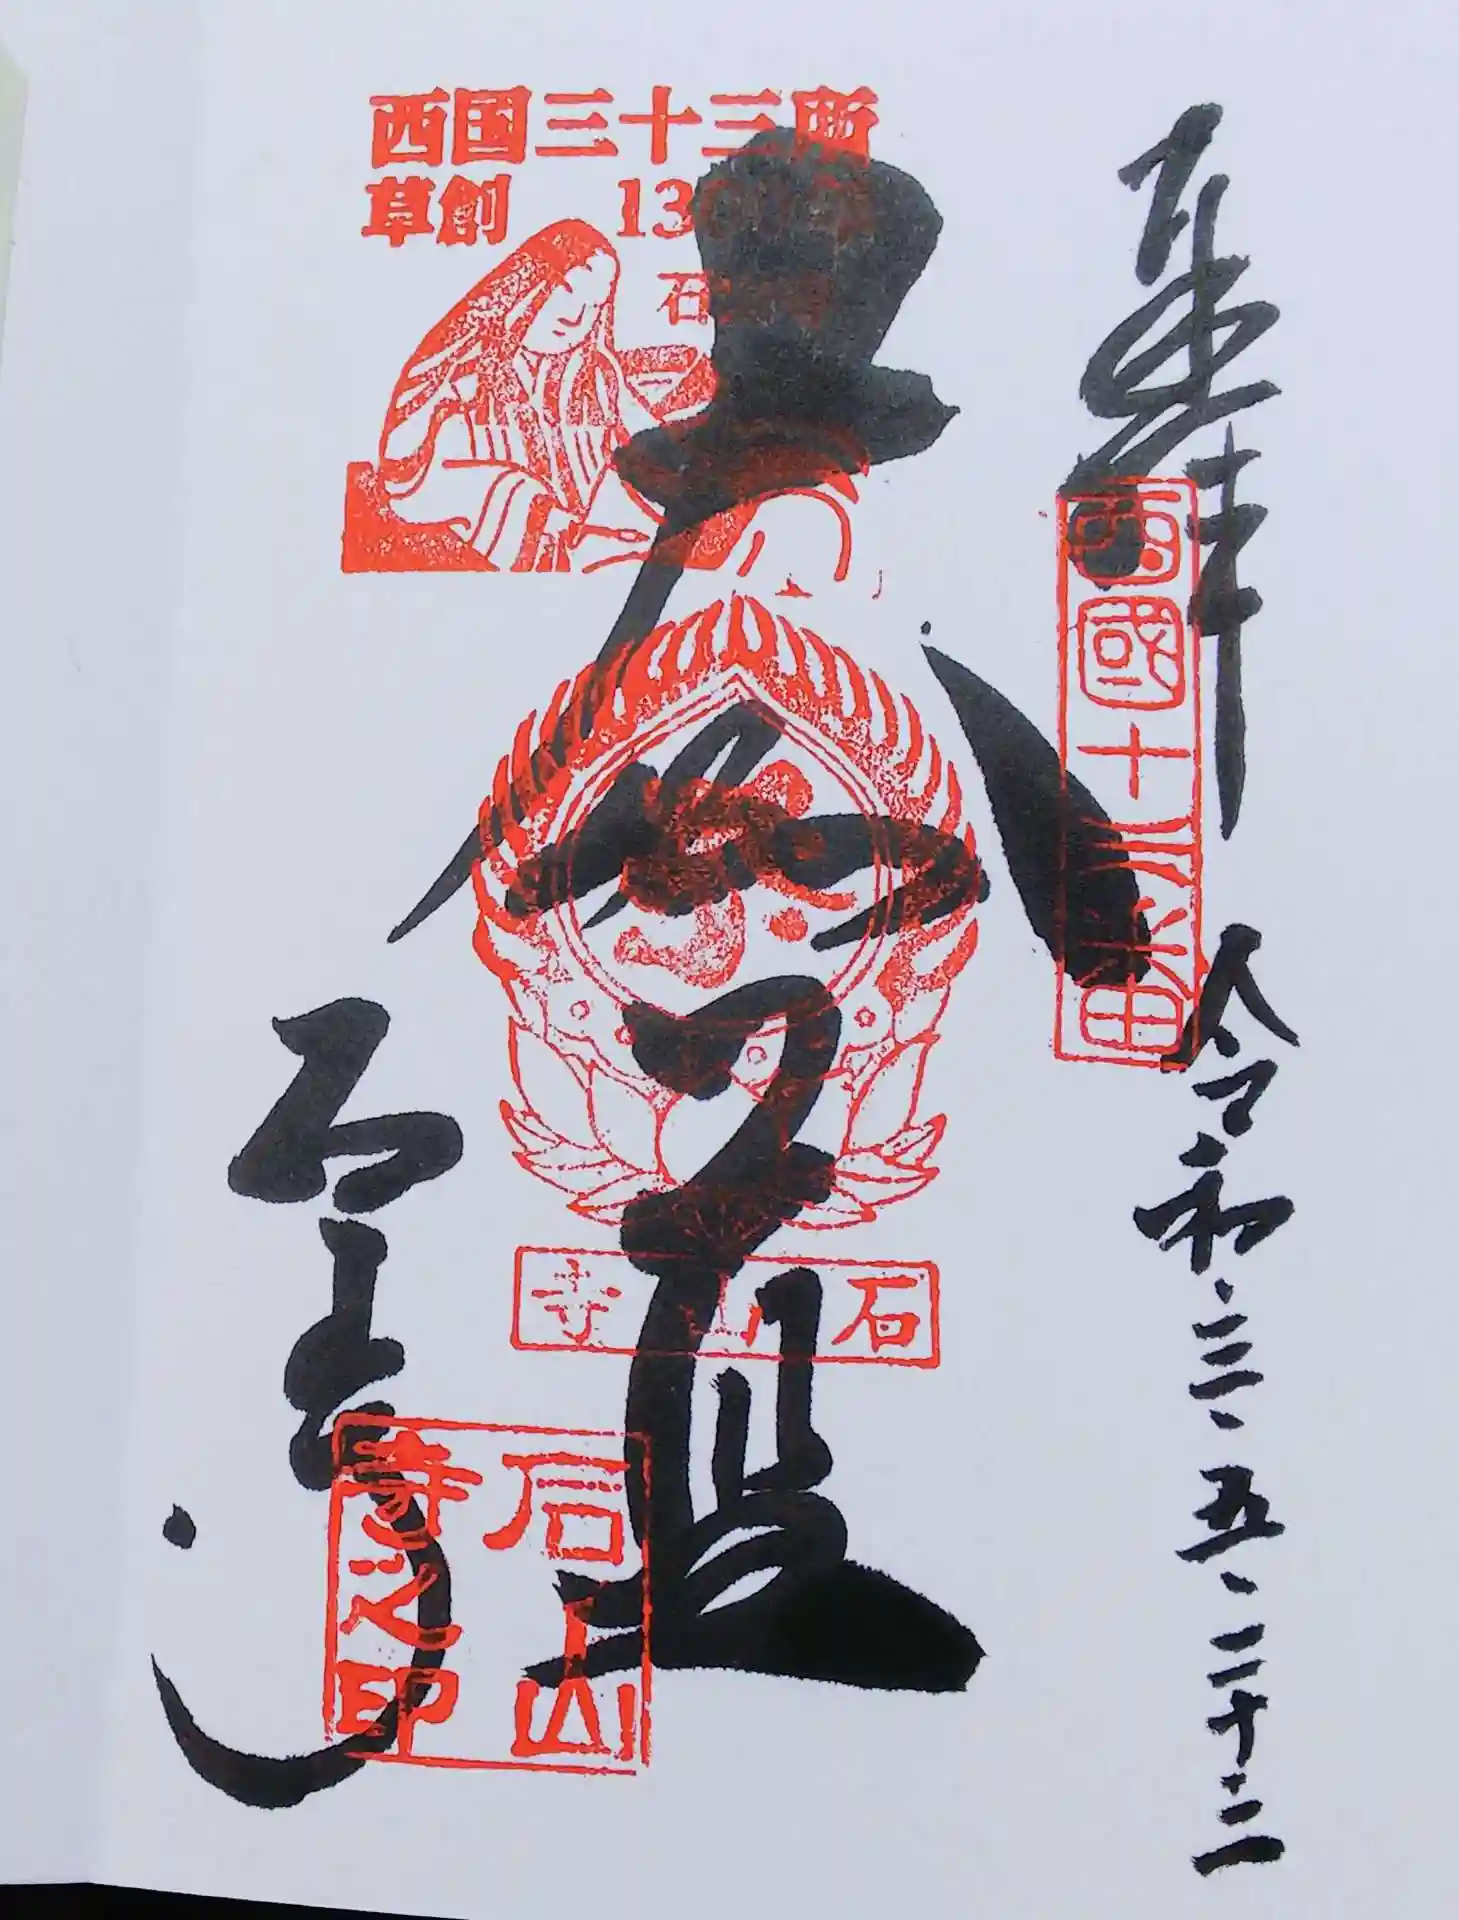 奉拝
令和三.五.二十二
西國十三番
西国三十三所
草創 13
石
大伽藍
石山寺
石山寺
石山寺之印